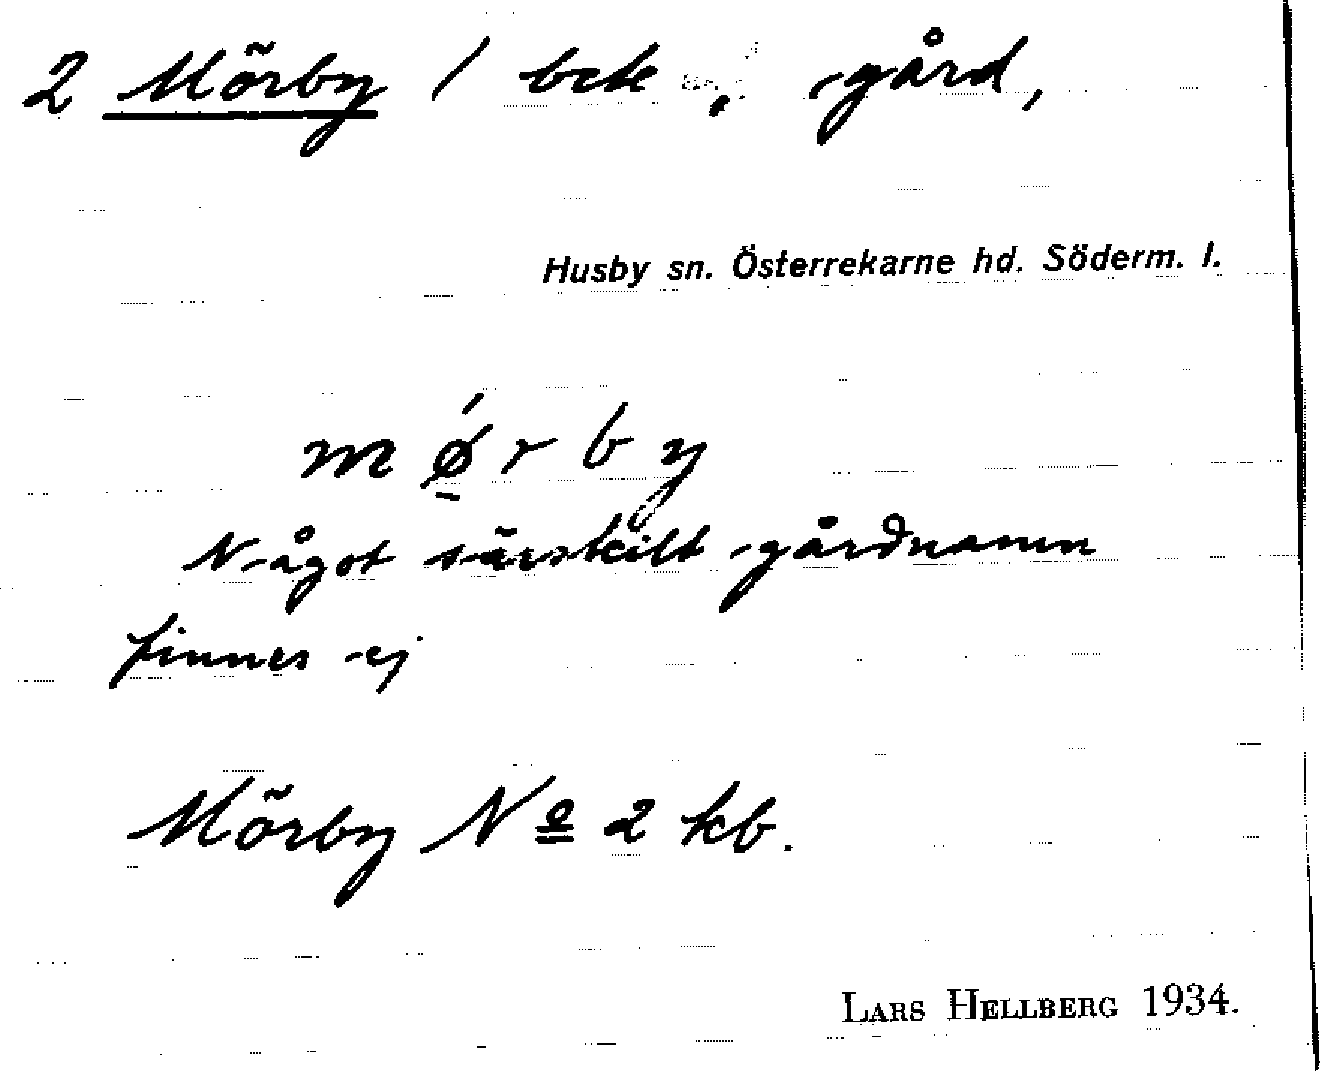 2 Mörby / bck , gård,
Husby sn. Österrekarne hd. Söderm. l.
mǿ̱rby
Något särskilt gårdnamn
finnes ej
Mörby Nº 2 kb.
LARS HELLBERG 1934.